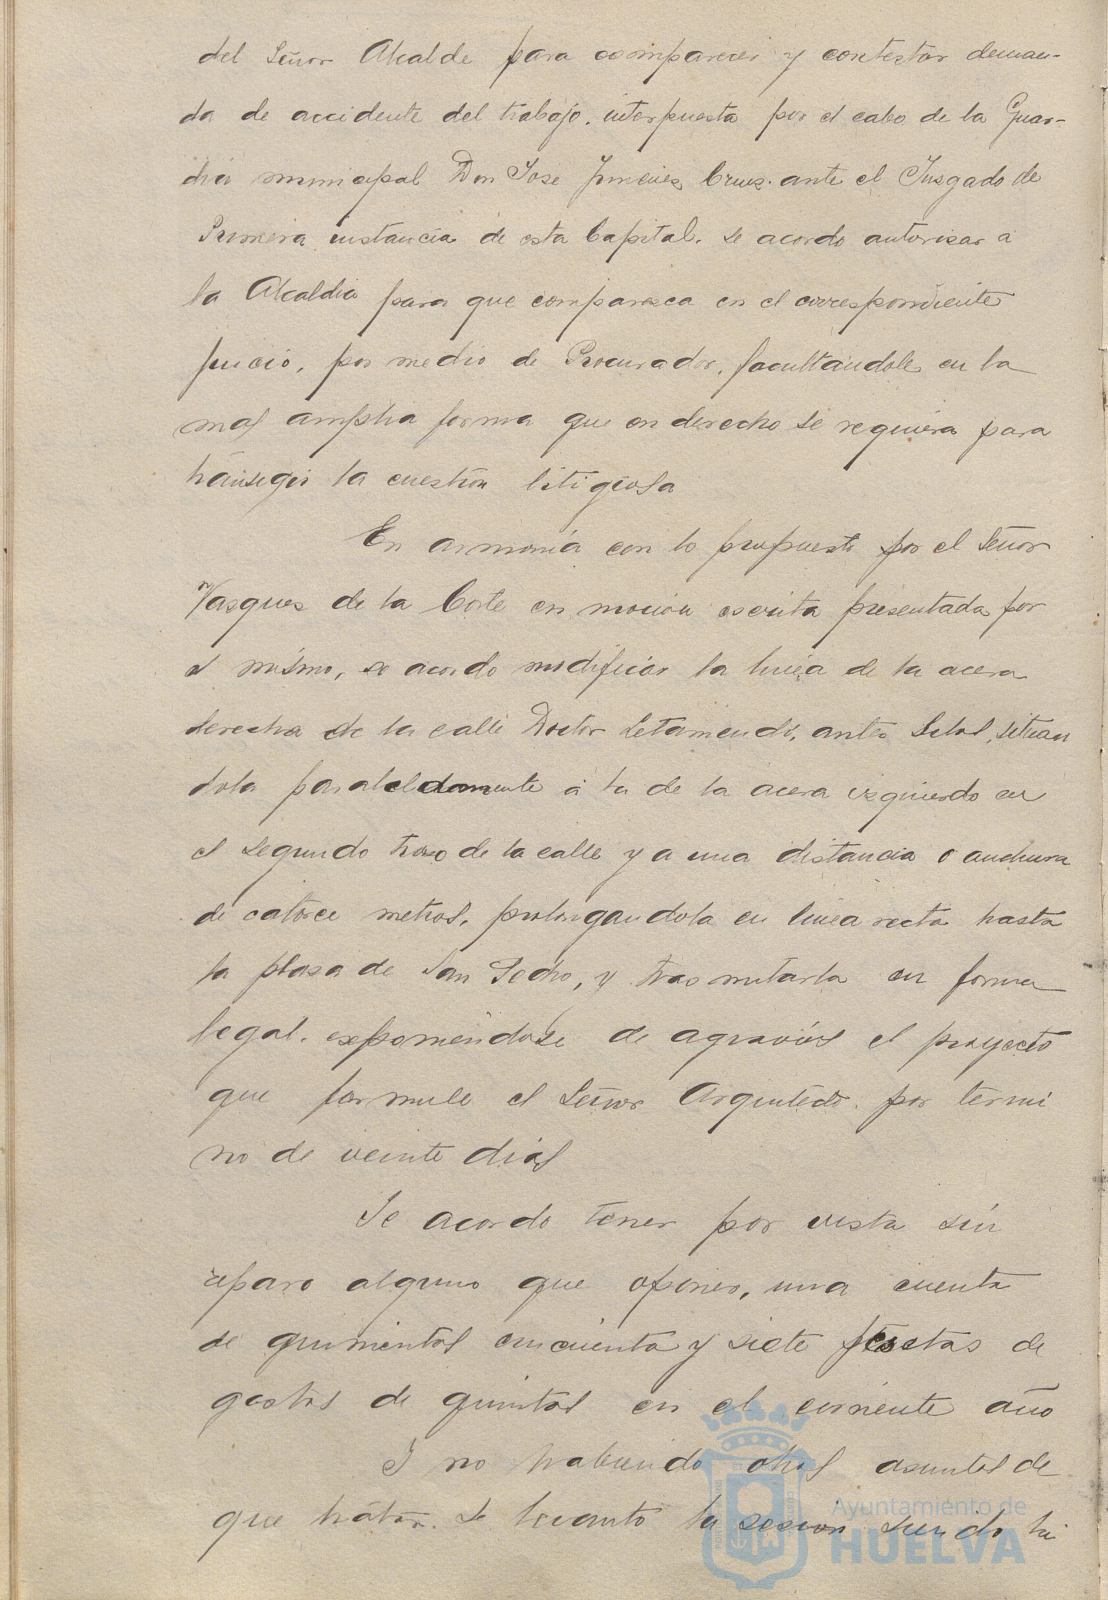 del Señor Alcalde para comparecer y contestar deman-
da de accidente del trabajo, interpuesta por el cabo de la Guar-
dia municipal Don Jose Jimenes Crus. ante el Jusgado de
Primera instancia de esta Capital. se acordo autorisar a
la Alcaldia para que comparesca en el correspondiente
juicio, por medio de Procurador, facultándole en la
mas amplia forma que en derecho se requiera para
transigir la cuestion litigiosa
En armonia con lo propuesto por el Señor
Vasques de la Corte en mocion escrita presentada por
el mismo, se acordo modificar la linea de la acera
derecha de la calle Doctor Letamendi, antes Silos, situan
dola paraleldamente á la de la acera izquierda en
el segundo traso de la calle y a una distancia o anchura
de catorce metros, prolongandola en linea recta hasta
la plasa de San Pedro, y trasmitarla en forma
legal. exponiéndose de agravios el proyecto
que formule el Señor Arquitecto. por termi
no de veinte dias
Se acordo tener por vista sin
reparo alguno que oponer, una cuenta
de quinientas cincuenta y siete pesetas de
gastos de quintas en el corriente año
I no habiendo otros asuntos de
que tratar. se levanto la sesion siendo la
Ayuntamiento de
HUELVA